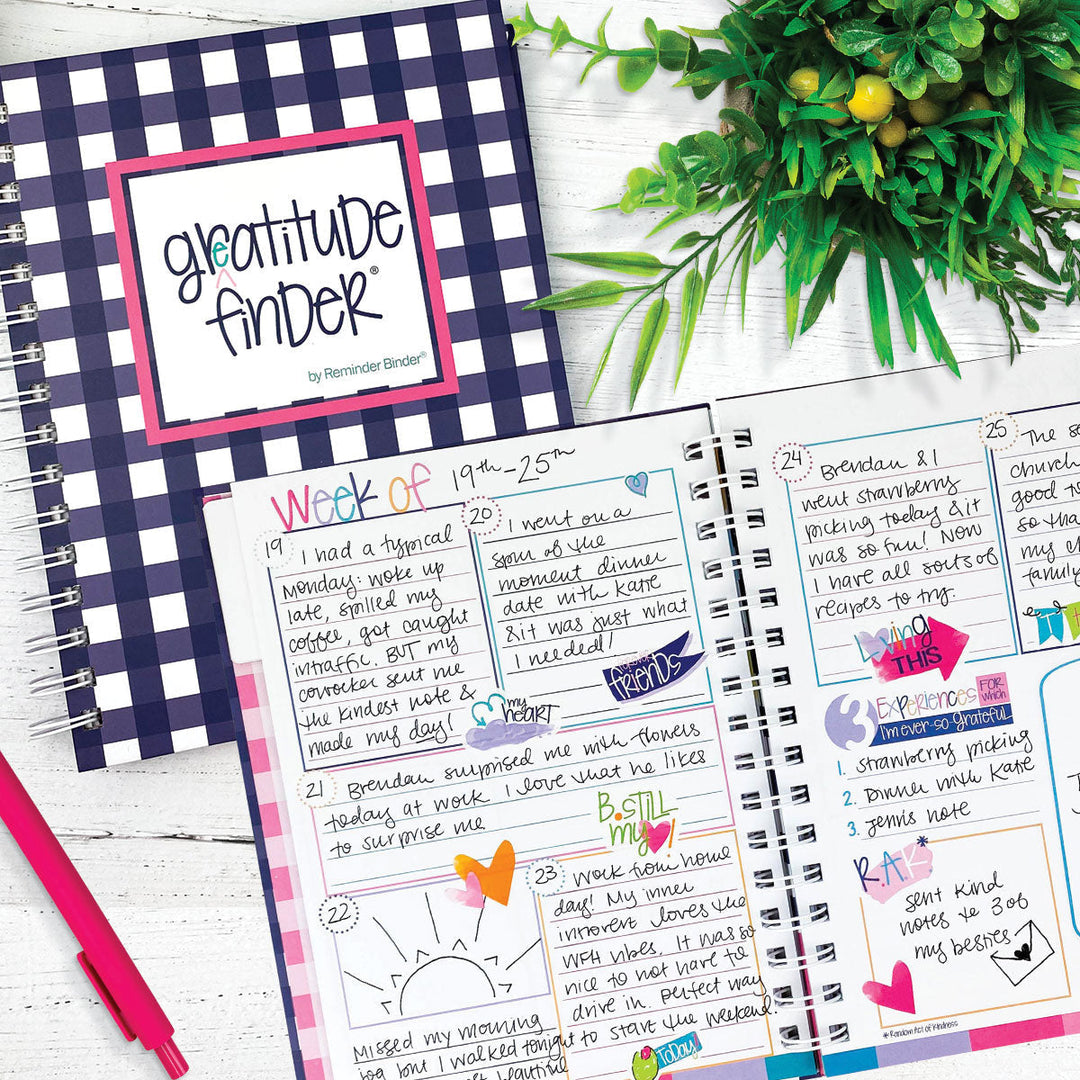 greatitude
finder®
by Reminder Binder®
Week of 19th-25th
19
I had a typical
Monday: woke up
late, spilled my
coffee, got caught
in traffic. BUT my
coworker sent me
the kindest note &
made my day!
my
HEART
20
I went on a
spur of the
moment dinner
date with Katie
& it was just what
I needed!
friends
21
Brendan surprised me with flowers
today at work. I love that he likes
to surprise me
B.STILL
my !
22
Missed my morning
jog but I walked tonight
beautiful
23
Work from home
day! My inner
introvert loves the
WFH vibes. It was so
nice to not have to
drive in. Perfect way
to start the weekend!
TODAY
24
Brendan & I
went strawberry
picking today & it
was so fun! Now
I have all sorts of
recipes to try.
Loving
THIS
25
The
church
good
so tha
my
family
3 EXPERIENCES FOR which
I'm ever-so-grateful
1. Strawberry picking
2. Dinner with Katie
3. Jen's note
R.A.K*
sent kind
notes to 3 of
my besties
*Random Act of Kindness